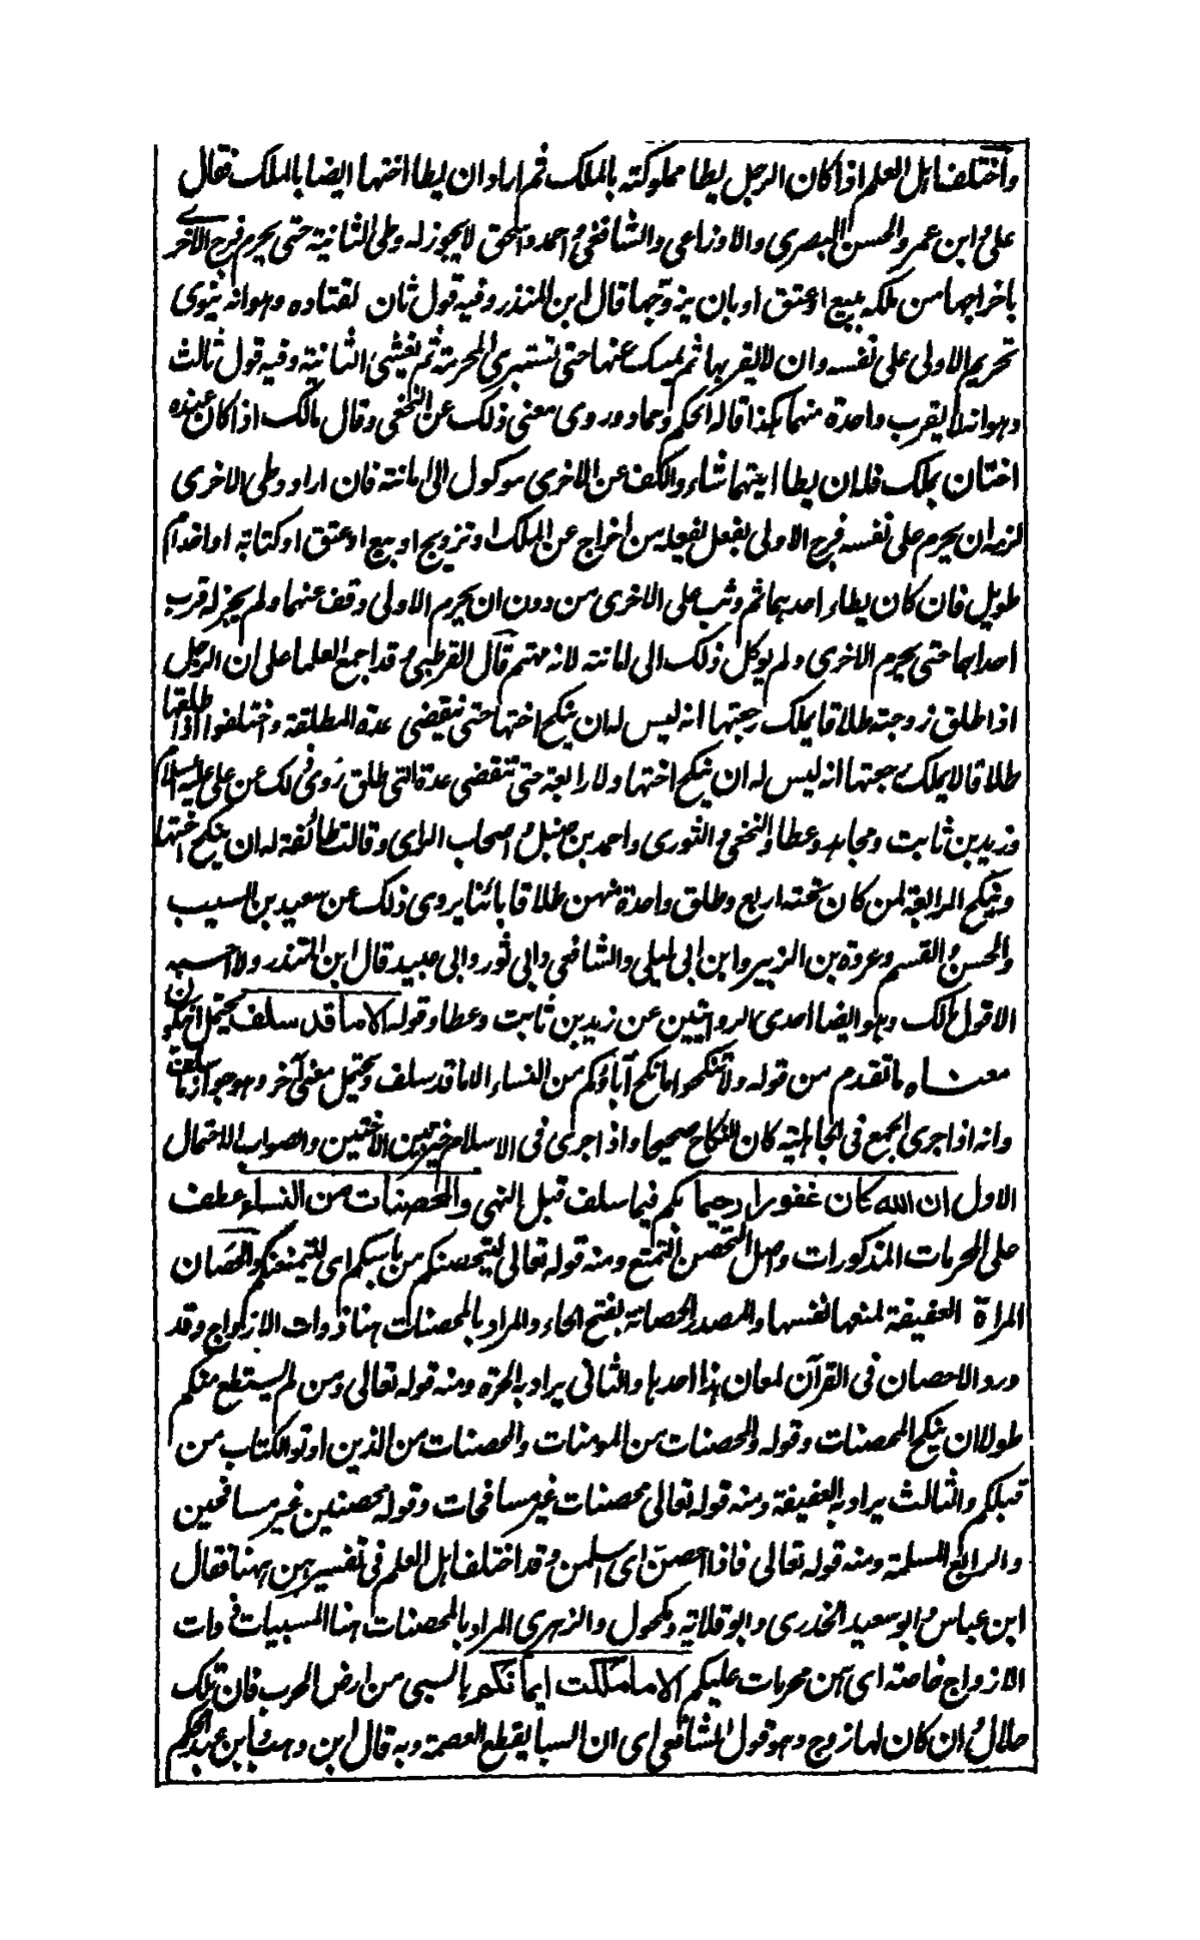 واختلف اهل العلم اذا كان الرجل يطا مملوكته بالملك ثم اراد ان يطا اختها ايضا بالملك فقال
علي وابن عمر والحسن البصري والاوزاعي والشافعي واحمد واسحق لا يجوز له وطى الثانية حتى يحرم فرج الاخرى
باخراجها من ملكه ببيع او عتق او بان يزوجها قال ابن المنذر وفيه قول ثان لقتاده وهو انه ينوى
تحريم الاولى على نفسه وان لا يقربها ثم يمسك عنها حتى تستبرى المحرمة ثم يغشى الثانية وفيه قول ثالث
وهو انه لا يقرب واحدة منهما هكذا قاله الحكم وحماد وروى معنى ذلك عن النخعي وقال مالك اذا كان عنده
اختان بملك فله ان يطا ايتهما شاء والكف عن الاخرى موكول الى امانته فان اراد وطى الاخرى
لزمه ان يحرم على نفسه فرج الاولى بفعل يفعله من اخراج عن الملك او تزويج او بيع او عتق او كتابة او اخدام
طويل فان كان يطاء احدهما ثم وثب على الاخرى من دون ان يحرم الاولى وقف عنهما ولم يجز له قرب
احداهما حتى يحرم الاخرى ولم يوكل ذلك الى امانته لانه متهم قال القرطبي وقد اجمع العلما على ان الرجل
اذا طلق زوجته طلاقا يملك رجعتها انه ليس له ان ينكح اختها حتى تنقضي عدة المطلقة واختلفوا اذا طلقها
طلاقا لا يملك رجعتها انه ليس له ان ينكح اختها ولا رابعة حتى تنقضي عدة التي طلق روى ذلك عن علي عليه السلام
وزيد بن ثابت ومجاهد وعطا والنخعي والثوري واحمد بن حنبل واصحاب الراى وقالت طائفة له ان ينكح اختها
وينكح الرابعة لمن كان تحته اربع وطلق واحدة منهن طلاقا بائنا يروى ذلك عن سعيد بن المسيب
والحسن والقسم وعروة بن الزبير وابن ابي ليلى والشافعي وابي ثور وابي عبيد قال ابن المنذر ولا احسبه
الا قول مالك وهو ايضا احدى الروايتين عن زيد بن ثابت وعطا وقوله الا ما قد سلف يحتمل ان يكون
معناه ما تقدم من قوله ولا تنكحوا ما نكح آباؤكم من النساء الا ما قد سلف ويحتمل معنى آخر وهو جواز ما سلف
وانه اذا جرى الجمع في الجاهلية كان النكاح صحيحا واذا جرى في الاسلام خير بين الاختين والصواب الاحتمال
الاول ان الله كان غفورا رحيما بكم فيما سلف قبل النهي والمحصنات من النساء عطف
على المحرمات المذكورات واصل التحصن التمتع ومنه قوله تعالى ليتحصنكم من باسكم اى ليتمنعكم والحصان
المراة العفيفة لمنعها نفسها والمصدر الحصانة بفتح الحاء والمراد بالمحصنات هنا ذوات الازواج وقد
ورد الاحصان في القرآن لمعان هذا احدها والثاني يراد به الحرة ومنه قوله تعالى ومن لم يستطع منكم
طولا ان ينكح المحصنات وقوله والمحصنات من المومنات والمحصنات من الذين اوتوا الكتاب من
قبلكم والثالث يراد به العفيفة ومنه قوله تعالى محصنات غير مسافحات وقوله محصنين غير مسافحين
والرابع المسلمة ومنه قوله تعالى فاذا احصن اى اسلمن وقد اختلف اهل العلم في تفسيرهن ههنا فقال
ابن عباس وابو سعيد الخدري وابو قلابة ومكحول والزهري المراد بالمحصنات هنا المسبيات ذوات
الازواج خاصة اى هن محرمات عليكم الا ما ملكت ايمانكم بالسبي من ارض الحرب فان تلك
حلال وان كان لها زوج وهو قول الشافعي اى ان السبا يقطع العصمة وبه قال ابن وهب وابن عبد الحكم